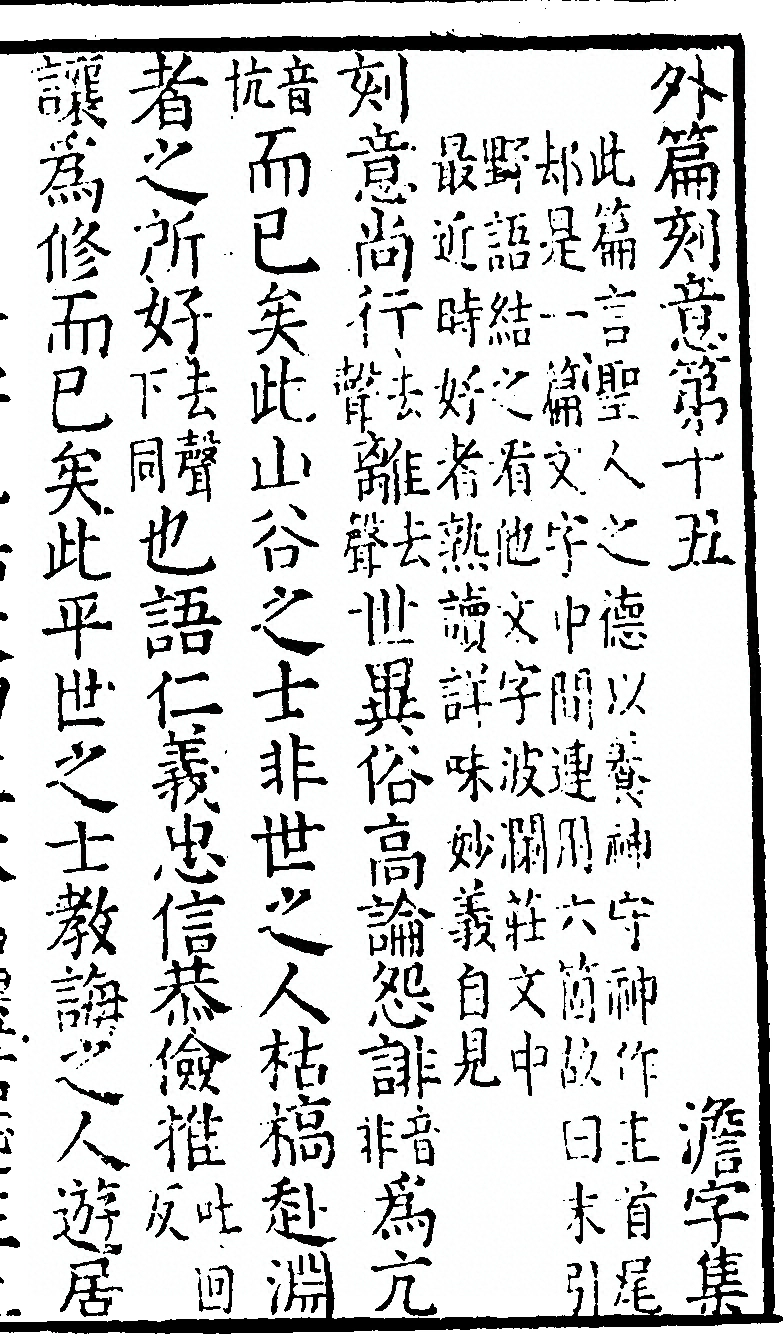 外篇刻意第十五 澹字集
此篇言聖人之德以養神守神作主首尾
却是一篇文字中間連用六箇故曰末引
野語結之看他文字波瀾莊文中
最近時好者熟讀詳味妙義自見
刻意尚行去聲離去聲世異俗高論怨誹音非為亢
音抗而已矣此山谷之士非世之人枯槁赴淵
者之所好去聲下同也語仁義忠信恭儉推吐回反
讓為修而已矣此平世之士教誨之人遊居